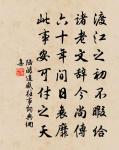 渡江之初不暇給
諸老文辭今尚傳
六十年間日衰靡
此事安可付之天
陸游追感往事